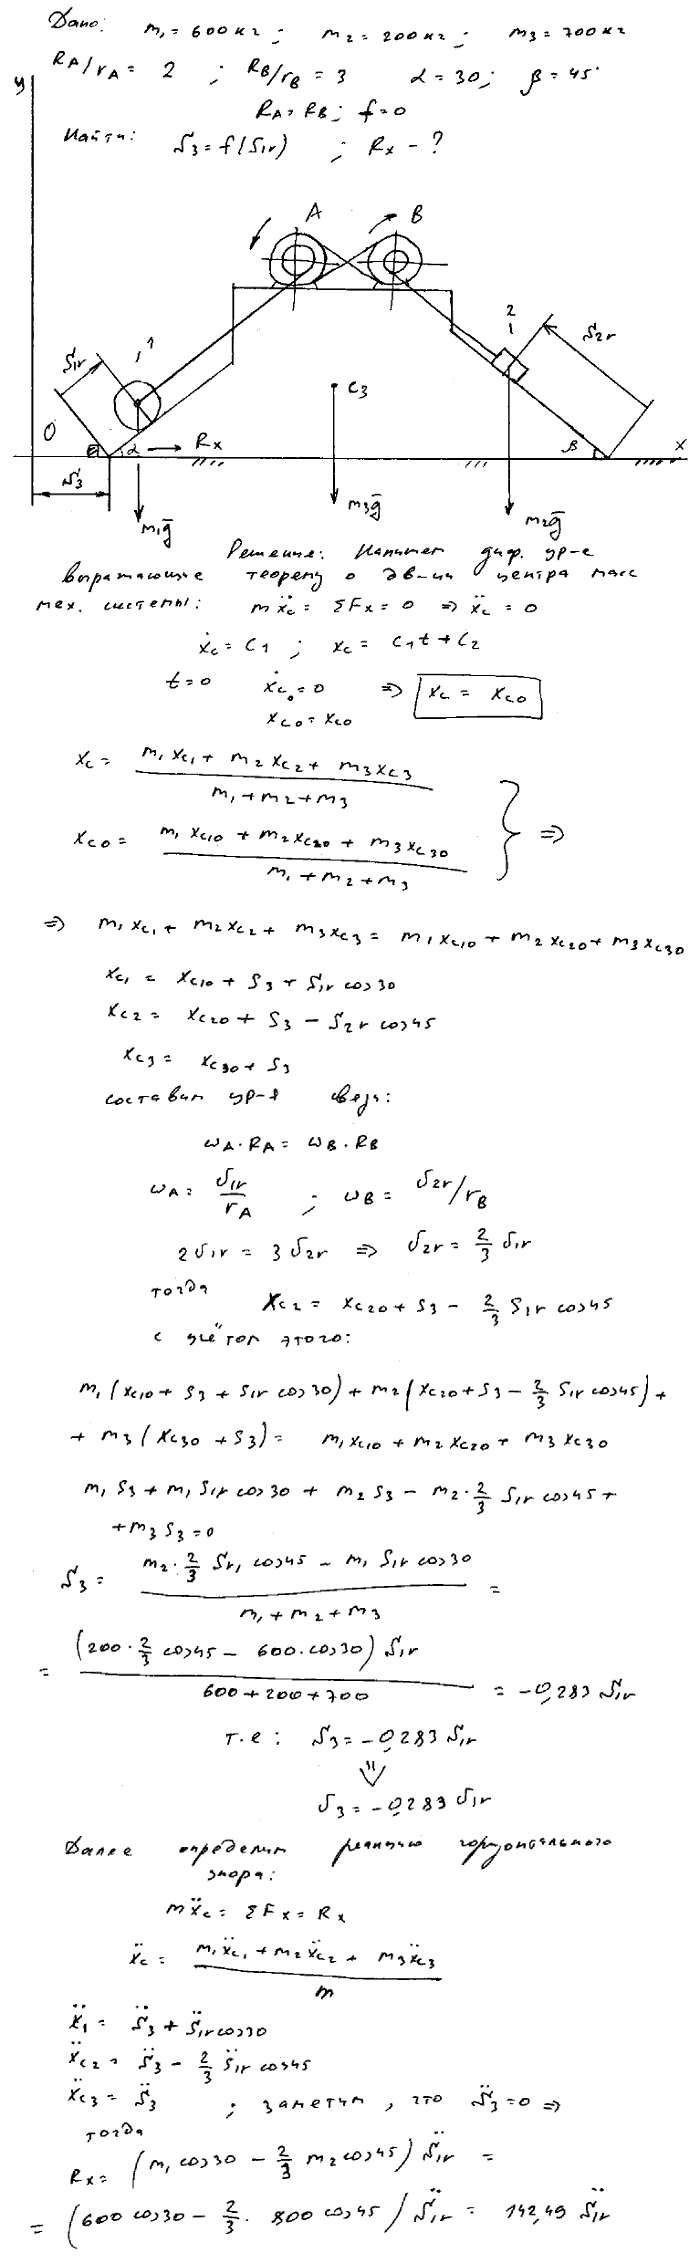 Дано: m₁ = 600 кг ; m₂ = 200 кг ; m₃ = 700 кг
R_A/r_A = 2 ; R_B/r_B = 3 α = 30; β = 45°
R_A = R_B ; f = 0
Найти: S₃ = f(S₁r) ; Rx - ?
y
A B
1
2
1
S₁r
S₂r
C₃
O
α
Rx
β
x
S₃
m₁g̅
m₃g̅
m₂g̅
Решение: Напишем диф. ур-е
выражающие теорему о дв-ии центра масс
мех. системы: mẍc = ΣFx = 0 ⇒ ẍc = 0
ẋc = C₁ ; xc = C₁t + C₂
t = 0 ẋc₀ = 0 ⇒ xc = xc₀
xc₀ = xc₀
xc = (m₁xc₁ + m₂xc₂ + m₃xc₃) / (m₁ + m₂ + m₃)
xc₀ = (m₁xc₁₀ + m₂xc₂₀ + m₃xc₃₀) / (m₁ + m₂ + m₃) } ⇒
⇒ m₁xc₁ + m₂xc₂ + m₃xc₃ = m₁xc₁₀ + m₂xc₂₀ + m₃xc₃₀
xc₁ = xc₁₀ + S₃ + S₁r cos30
xc₂ = xc₂₀ + S₃ - S₂r cos45
xc₃ = xc₃₀ + S₃
составим ур-я связи:
ω_A · R_A = ω_B · R_B
ω_A = υ₁r / r_A ; ω_B = υ₂r/r_B
2υ₁r = 3υ₂r ⇒ υ₂r = 2/3 υ₁r
тогда xc₂ = xc₂₀ + S₃ - 2/3 S₁r cos45
с учётом этого:
m₁(xc₁₀ + S₃ + S₁r cos30) + m₂(xc₂₀ + S₃ - 2/3 S₁r cos45) +
+ m₃(xc₃₀ + S₃) = m₁xc₁₀ + m₂xc₂₀ + m₃xc₃₀
m₁S₃ + m₁S₁r cos30 + m₂S₃ - m₂ · 2/3 S₁r cos45 +
+ m₃S₃ = 0
S₃ = (m₂ · 2/3 Sr₁ cos45 - m₁ S₁r cos30) / (m₁ + m₂ + m₃) =
= (200 · 2/3 cos45 - 600 · cos30) S₁r / (600 + 200 + 700) = -0,283 S₁r
т.е : S₃ = -0,283 S₁r
⇓
υ₃ = -0,283 υ₁r
Далее определим реакцию горизонтального
упора:
mẍc = ΣFx = Rx
ẍc = (m₁ẍc₁ + m₂ẍc₂ + m₃ẍc₃) / m
ẍ₁ = S̈₃ + S̈₁r cos30
ẍc₂ = S̈₃ - 2/3 S̈₁r cos45
ẍc₃ = S̈₃ ; заметим, что S̈₃ = 0 ⇒
тогда
Rx = (m₁ cos30 - 2/3 m₂ cos45) S̈₁r =
= (600 cos30 - 2/3 · 800 cos45) S̈₁r = 142,49 S̈₁r